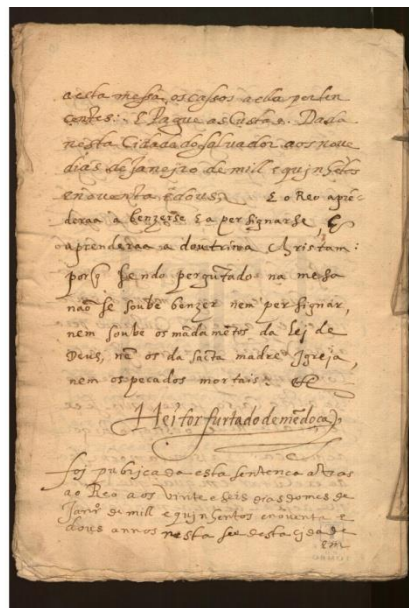 a esta messa, os cassos a ella perten
centes: E Pague as Custas. Dada
nesta Cidade do Salvador aos nove
dias de Janeiro de mill e quinhẽtos
e novẽnta e dous, E o Reo aprẽ-
deraa a benzerse e a persignarse, E
aprenderaa a doutrina christam:
porq̃ sendo pergũtado na mesa
naõ se soube benzer nem persignar,
nem soube os mãdamẽtos da lej de
Deus, nẽ os da sãcta madre Igreja,
nem os pecados mortais:
Heitor furtado de mẽdoça
foj pubricada esta sentença atras
ao Reo aos vinte e seis dias do mes de
Janrº de mill e quinhentos e noventa e
dous annos nesta see desta cidade